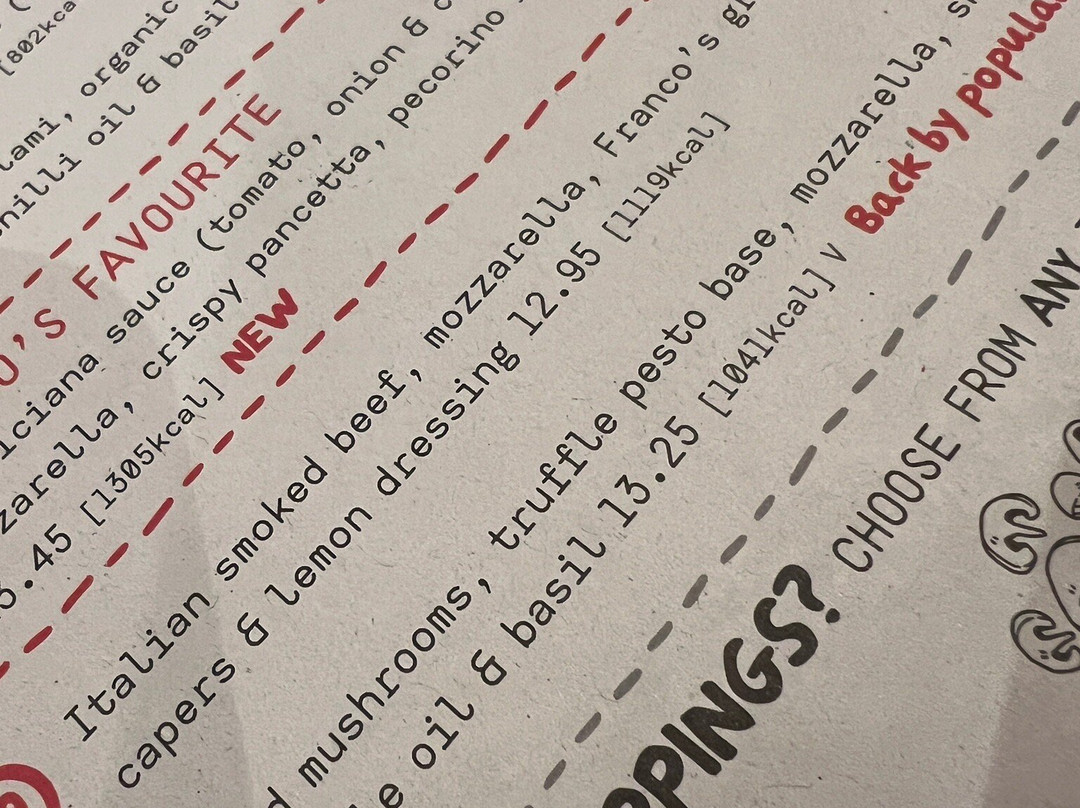 [802kca
lami, organic
nilli oil & basil
O'S FAVOURITE
iciana sauce (tomato, onion & c
zarella, crispy pancetta, pecorino
.45 [1305kcal] NEW
Italian smoked beef, mozzarella, Franco's gr
capers & lemon dressing 12.95 [1119kcal]
d mushrooms, truffle pesto base, mozzarella, s
e oil & basil 13.25 [1041kcal] V Back by popula
PPINGS? CHOOSE FROM ANY